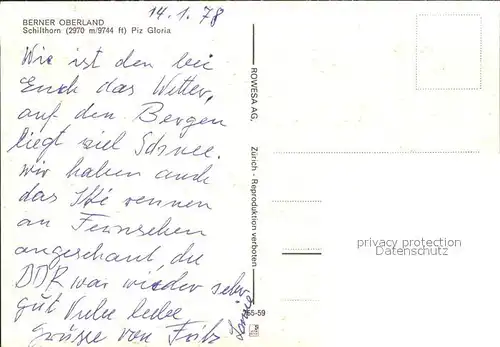 14.1.78
BERNER OBERLAND
Schilthorn (2970 m/9744 ft) Piz Gloria
Wie ist den bei
Euch das Wetter,
auf den Bergen
liegt viel Schnee.
wir haben auch
das Ski rennen
an Fernsehen
angeschaut, die
DDR war wieder sehr
gut Viele liebe
Grüsse von Fritz
ROWESA AG, Zürich - Reproduktion verboten
65-59
privacy protection
Datenschutz